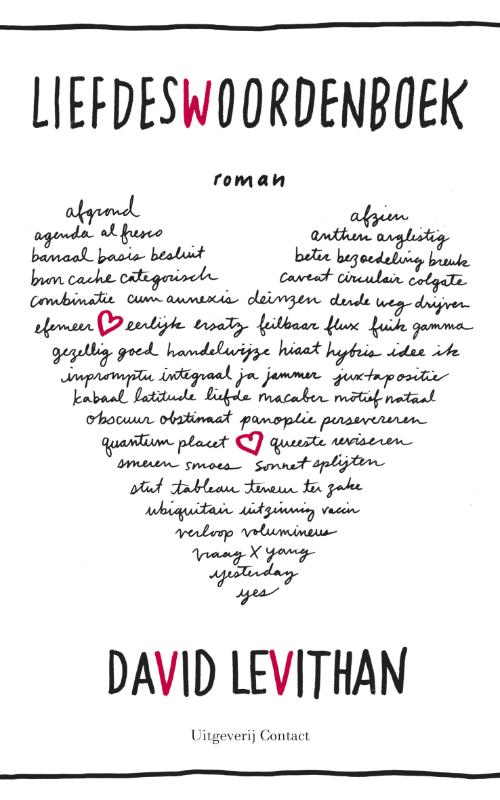 LIEFDESWOORDENBOEK
roman
afgrond afzien
agenda al fresco anthem arglistig
banaal basis besluit beter bezoedeling breuk
bron cache categorisch caveat circulair colgate
combinatie cum annexis deinzen derde weg drijven
efemeer eerlijk ersatz feilbaar flux fuik gamma
gezellig goed handelwijze hiaat hybris idee ik
impromptu integraal ja jammer juxtapositie
kabaal latitude liefde macaber motief nataal
obscuur obstinaat panoplie persevereren
quantum placet queeste reviseren
smeren smoes sonnet splijten
stut tableau teneur ter zake
ubiquitair uitzinnig vacin
verloop volumineus
vraag X yang
yesterday
yes
DAVID LEVITHAN
Uitgeverij Contact